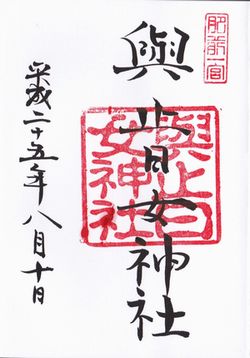 肥前一宮
與止日女神社
與止日女神社
平成二十五年八月十日